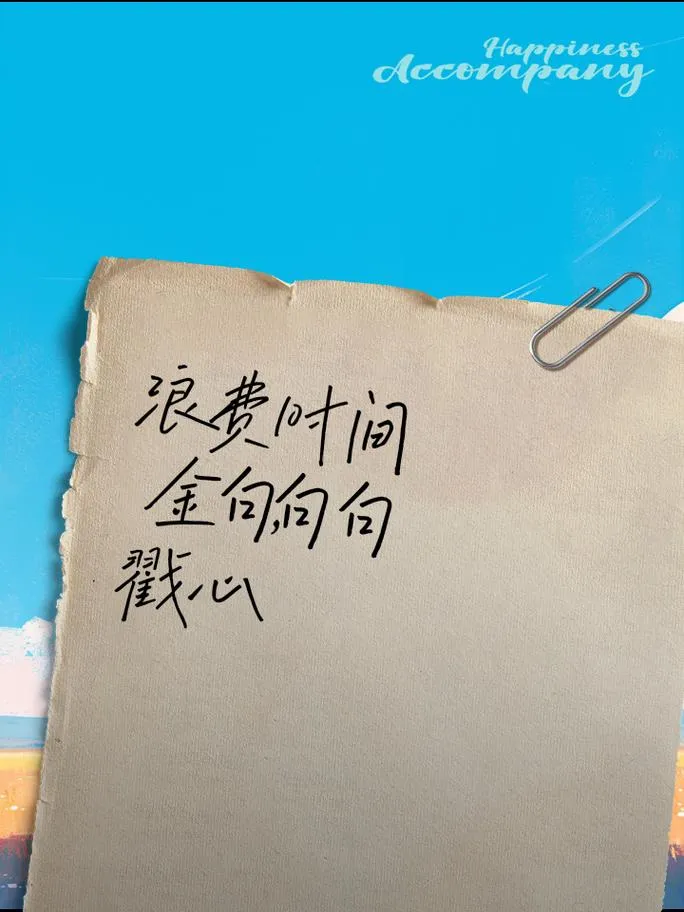 Happiness
Accompany
浪费时间
金句,句句
戳心